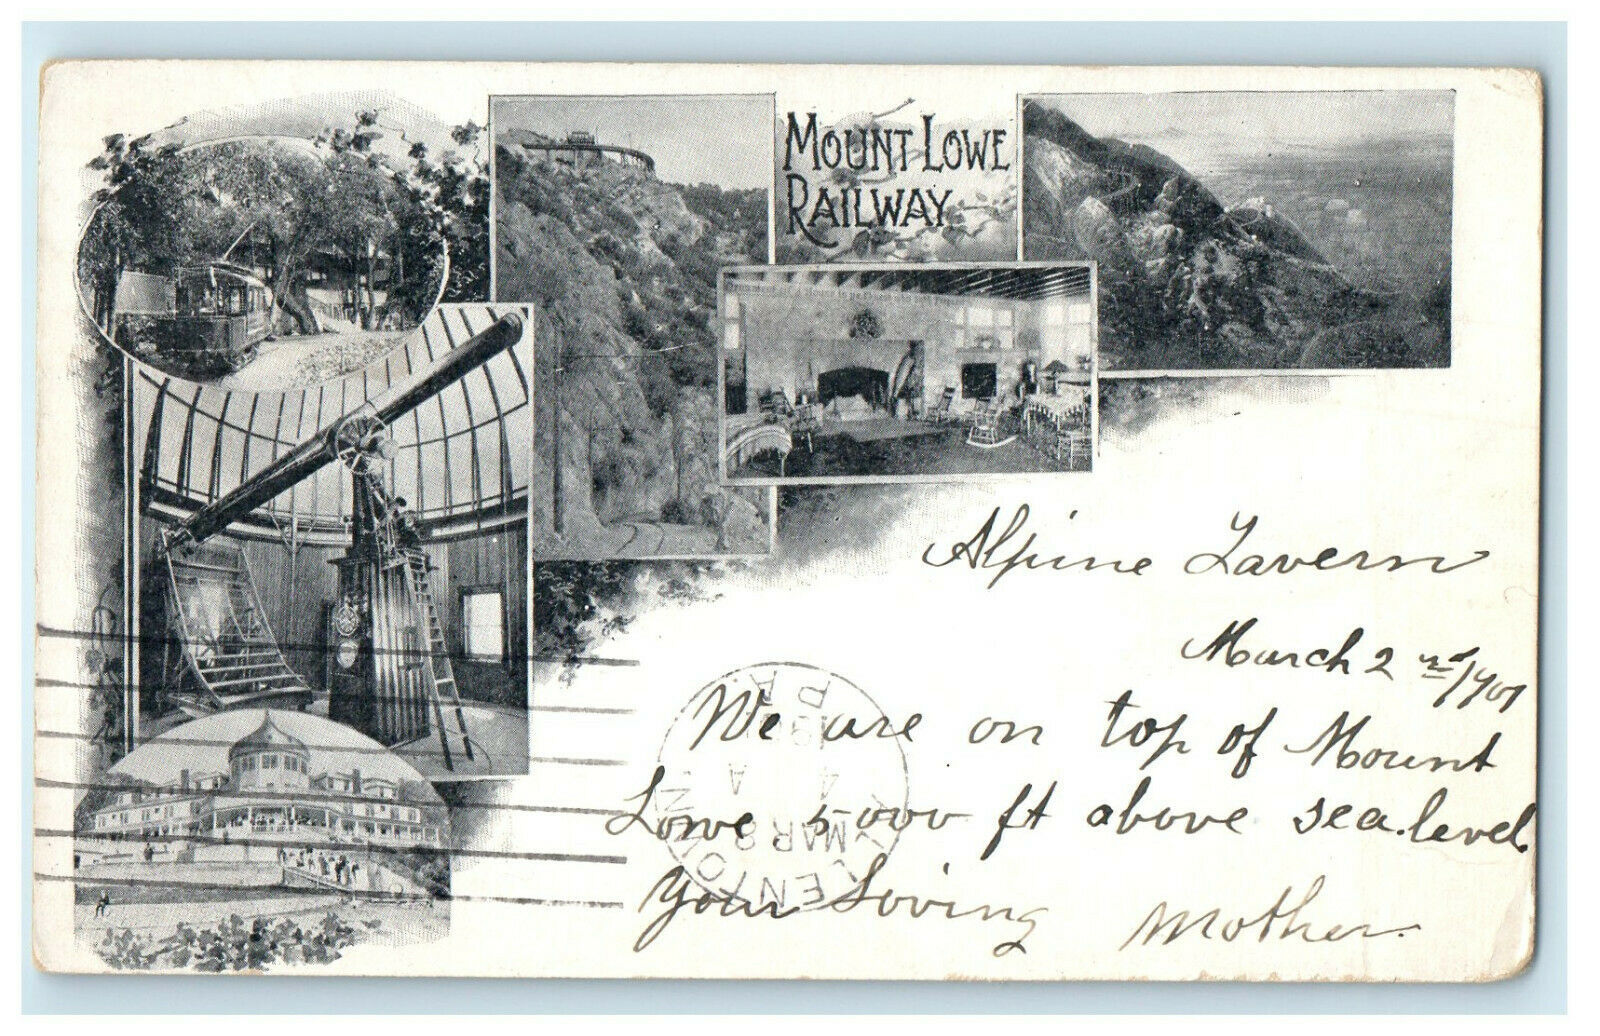 MOUNT LOWE
RAILWAY
Alpine Tavern
March 2nd/1901
We are on top of Mount
Lowe 5000 ft above sea level
Your Loving Mother.
ALLENTOWN
MAR 8
4 A
190
PA.